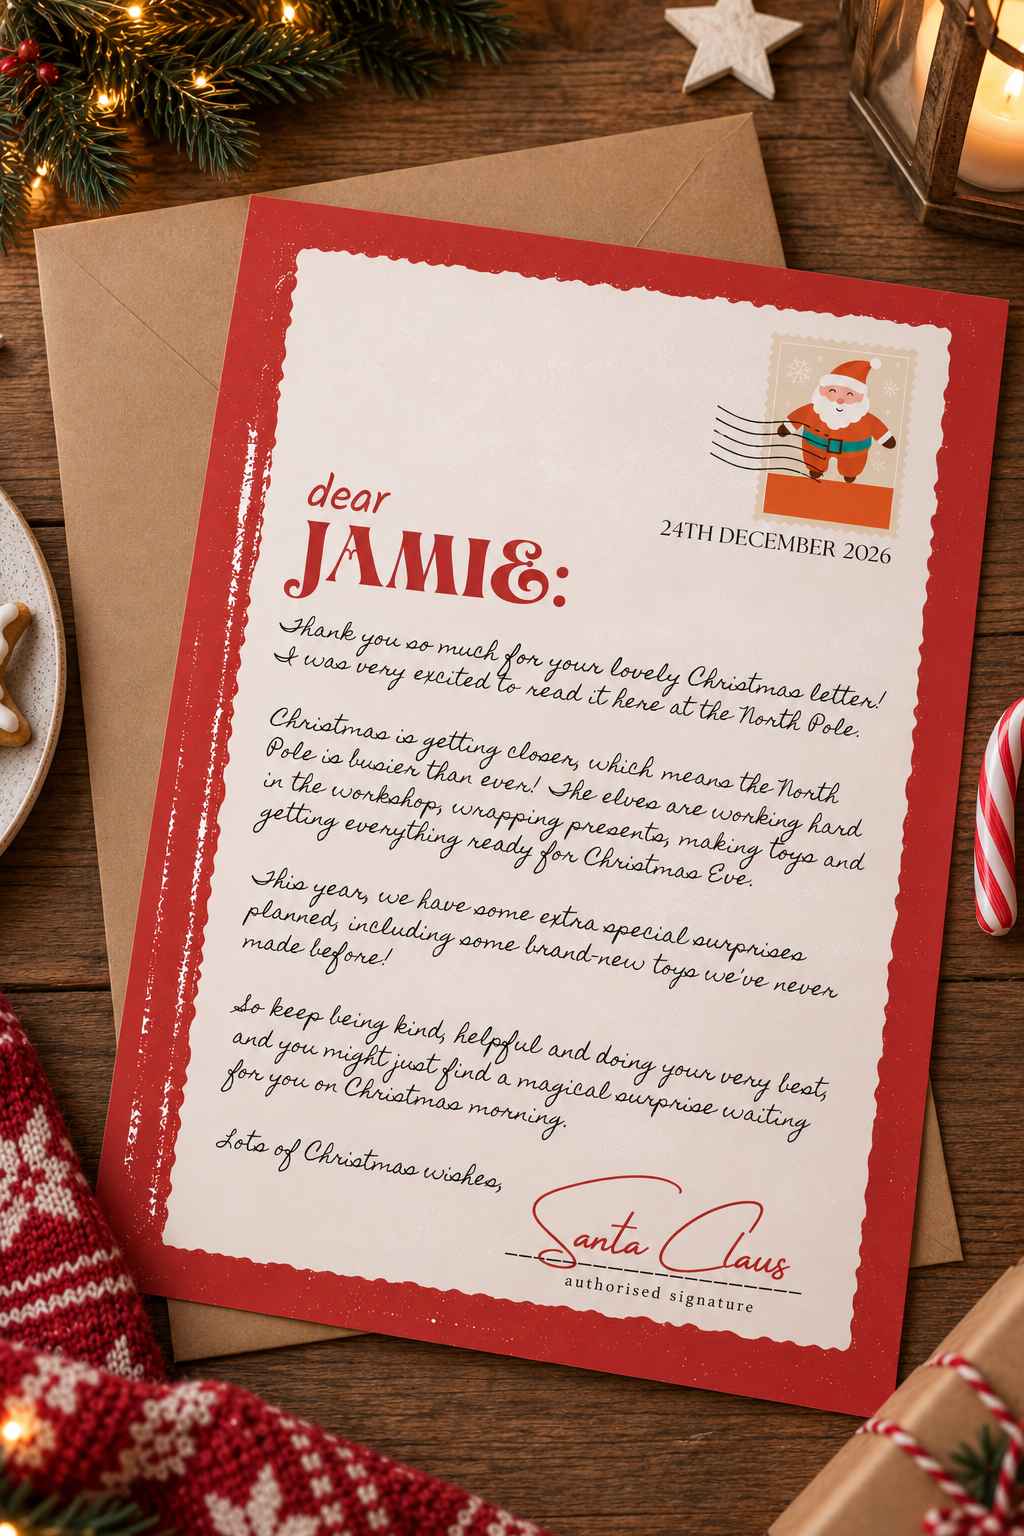 dear
JAMIE:
24TH DECEMBER 2026
Thank you so much for your lovely Christmas letter!
I was very excited to read it here at the North Pole.
Christmas is getting closer, which means the North
Pole is busier than ever! The elves are working hard
in the workshop, wrapping presents, making toys and
getting everything ready for Christmas Eve.
This year, we have some extra special surprises
planned, including some brand-new toys we've never
made before!
So keep being kind, helpful and doing your very best,
and you might just find a magical surprise waiting
for you on Christmas morning.
Lots of Christmas wishes,
Santa Claus
authorised signature